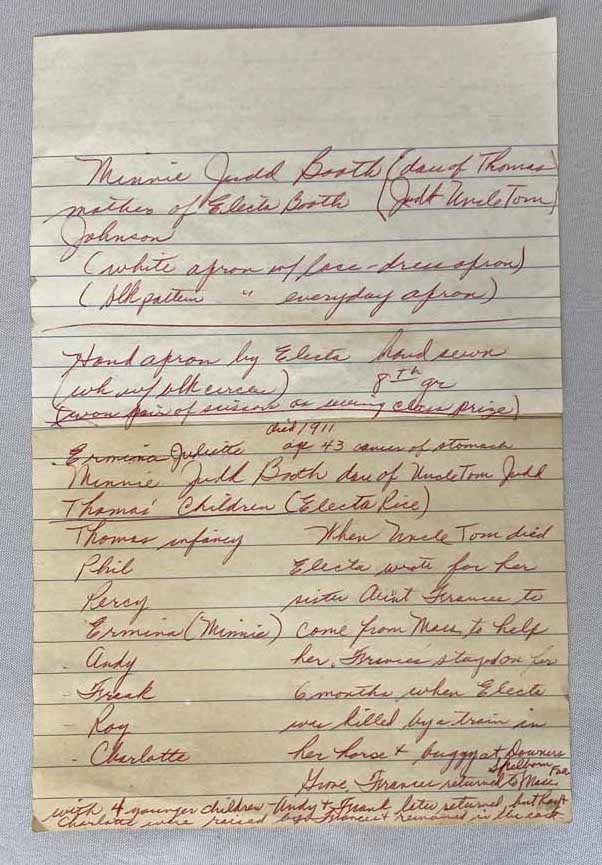 Minnie Judd Booth (dau of Thomas
mother of Electa Booth (Judd Uncle Tom)
Johnson
(white apron w/ lace - dress apron)
(blk pattern " everyday apron)
Hand apron by Electa hand sewn
(wh w/ blk circen) 8th gr
(won pair of scissors as sewing class prize)
died 1911
Ermina Juliette age 43 cancer of stomach
Minnie Judd Booth dau of Uncle Tom Judd
Thomas' Children (Electa Rice)
Thomas infancy When Uncle Tom died
Phil Electa wrote for her
Percy sister Aunt Frances to
Ermina (Minnie) come from Mass to help
- Andy her. Frances stayed on for
- Frank 6 months when Electa
- Roy was killed by a train in
- Charlotte her horse + buggy at Downers
Grove, Frances returned to Mass
with 4 younger children - Andy + Frank later returned, but Roy +
Charlotte were raised by Frances + remained in the east